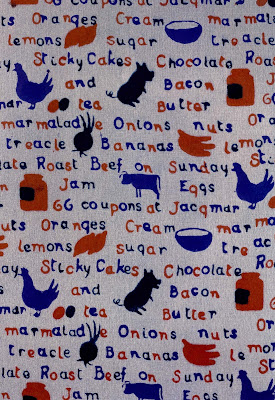 GG coupons at Jacqmar
Oranges Cream marmal
lemons sugar treacle
y Sticky Cakes Chocolate Roa
and Bacon
mar tea Butter
Ora
marmalade Onions nuts
treacle Bananas lemons
late Roast Beef on Sunday St
Jam Eggs
GG coupons at Jacqmar mar
uts Oranges Cream mar
lemons sugar trea
y Sticky Cakes Chocolate
and Bacon
tea Butter
marmalade Onions nuts
treacle Bananas lemo
late Roast Beef on Sunday
Jam Eggs